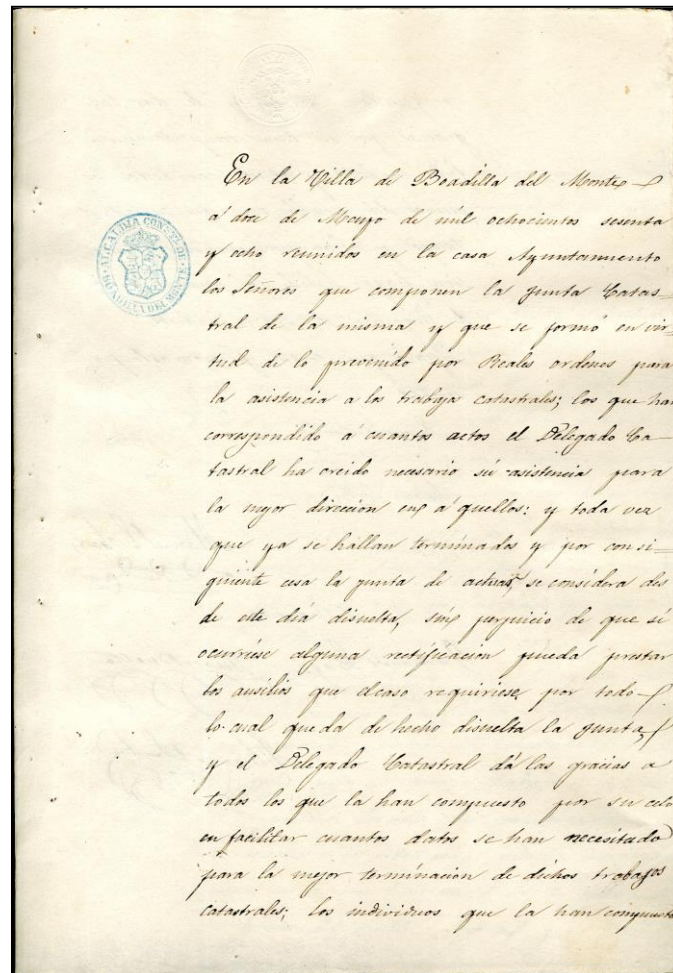 ALCALDIA CONSTL. DE
BOADILLA DEL MONTE
En la Villa de Boadilla del Monte
á doce de Mayo de mil ochocientos sesenta
y ocho reunidos en la casa Ayuntamiento
los Señores que componen la Junta Catas=
tral de la misma y que se formó en vir=
tud de lo prevenido por Reales ordenes para
la asistencia a los trabajos catastrales; los que han
correspondido á cuantos actos el Delegado Ca-
tastral ha creido necesario sú asistencia para
la mejor direccion en á quellos: y toda vez
que ya se hallan terminados y por consi=
guiente cesa la junta de actuar, se considera des
de este dia disuelta, sin perjuicio de que si
ocurriese alguna rectificacion pueda prestar
los ausilios que el caso requiriese, por todo
lo cual queda de hecho disuelta la Junta,
y el Delegado Catastral dá las gracias a
todos los que la han compuesto por su celo
en facilitar cuantos datos se han necesitado
para la mejor terminacion de dichos trabajos
catastrales; los individuos que la han compuesto